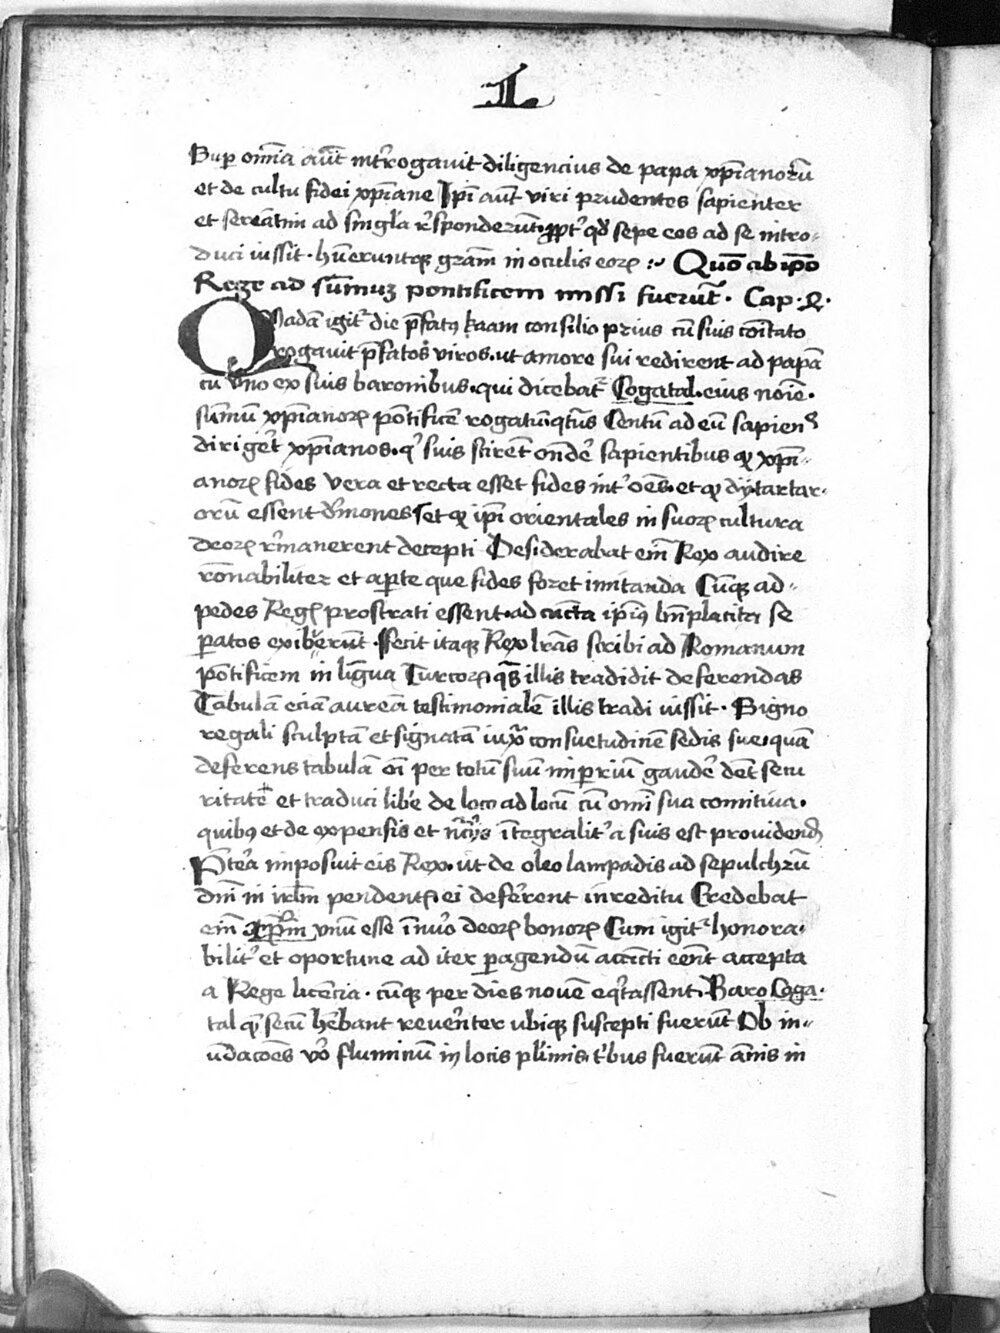 1
Sup om̄ia aūt int̓rogauit diligencius de papa xp̄ianorū
et de cultu fidei xp̄iane Ip̄i aūt viri prudentes sapienter
et seriatim ad singl̓a r̓sponderūt ꝓpt̓ qd̓ sepe eos ad se intro-
duci iussit · hūeruntqꝫ gr̄am in oculis eoꝝ : Quō ab ip̄o
Rege ad sūmuꝫ pontificem missi fuerūt · Cap · 2 ·
Quadā igit̓ die p̄fatꝯ kaam consilio prius cū suis cōitato
rogauit p̄fatos viros · ut amore sui redirent ad papā
cū vno ex suis baronibus · qui dicebat̓ Cogatal · eius noīe ·
sūmū xp̄ianoꝝ pōtificē rogatuꝝ qtūs Centū ad eū sapien̄
dirig̓et xp̄ianos · q̓ suis scirēt ondē̓ sapientibus ꝙ xp̄i-
anoꝝ fides vera et recta esset fides int̓ oēs · et ꝙ dij tartar-
orū essent d̓mones et ꝙ ip̄i orientales in suoꝝ cultura
deoꝝ r̓manerent decepti Desiderabat em̄ Rex audire
rōnabiliter et aꝑte que fides foret imitanda Cūqꝫ ad-
pedes Regꝭ prostrati essent · ad cūcta ip̄iꝰ bn̄placita se
ꝑatos exib̓erūt · Fecit itaqꝫ Rex lr̄as scribi ad Romanum
pōtificem in līgua Turcoꝝ q̄s illis tradidit deferendas
Tabulā eciā aureā testimonialē illis tradi iussit · Signo
regali sculptā et signatā iux̄ consuetudinē sedis sue · quā
deferens tabulā oī per totū suū imꝑiū gaudē̓ d̓et secu
ritate et traduci lib̓e de loco ad locū cū om̄i sua comitiua ·
quibꝯ et de expensis et nc̄c̓ijs ītegralit̓ a suis est prouidend̓
P̄t̓ea imposuit eis Rex · ut de oleo lampadis ad sepulchrū
dn̄i in irl̄m pendentꝭ ei def̓erent in reditu Credebat
em̄ xp̄m vnū esse ī nu̓o deoꝝ bonoꝝ Cum igit̓ honora-
bilit̓ et oportune ad iter ꝑagendū accīcti eēnt accepta
a Rege licēcia · cūqꝫ per dies nouē eq̓tassent · Baro Coga-
tal q̓ secū h̄ebant reuēnter ubiqꝫ suscepti fuerūt Ob in-
ūdacōes vo̓ fluminū in locis pl̓imis t̓bus fuerūt ānis in